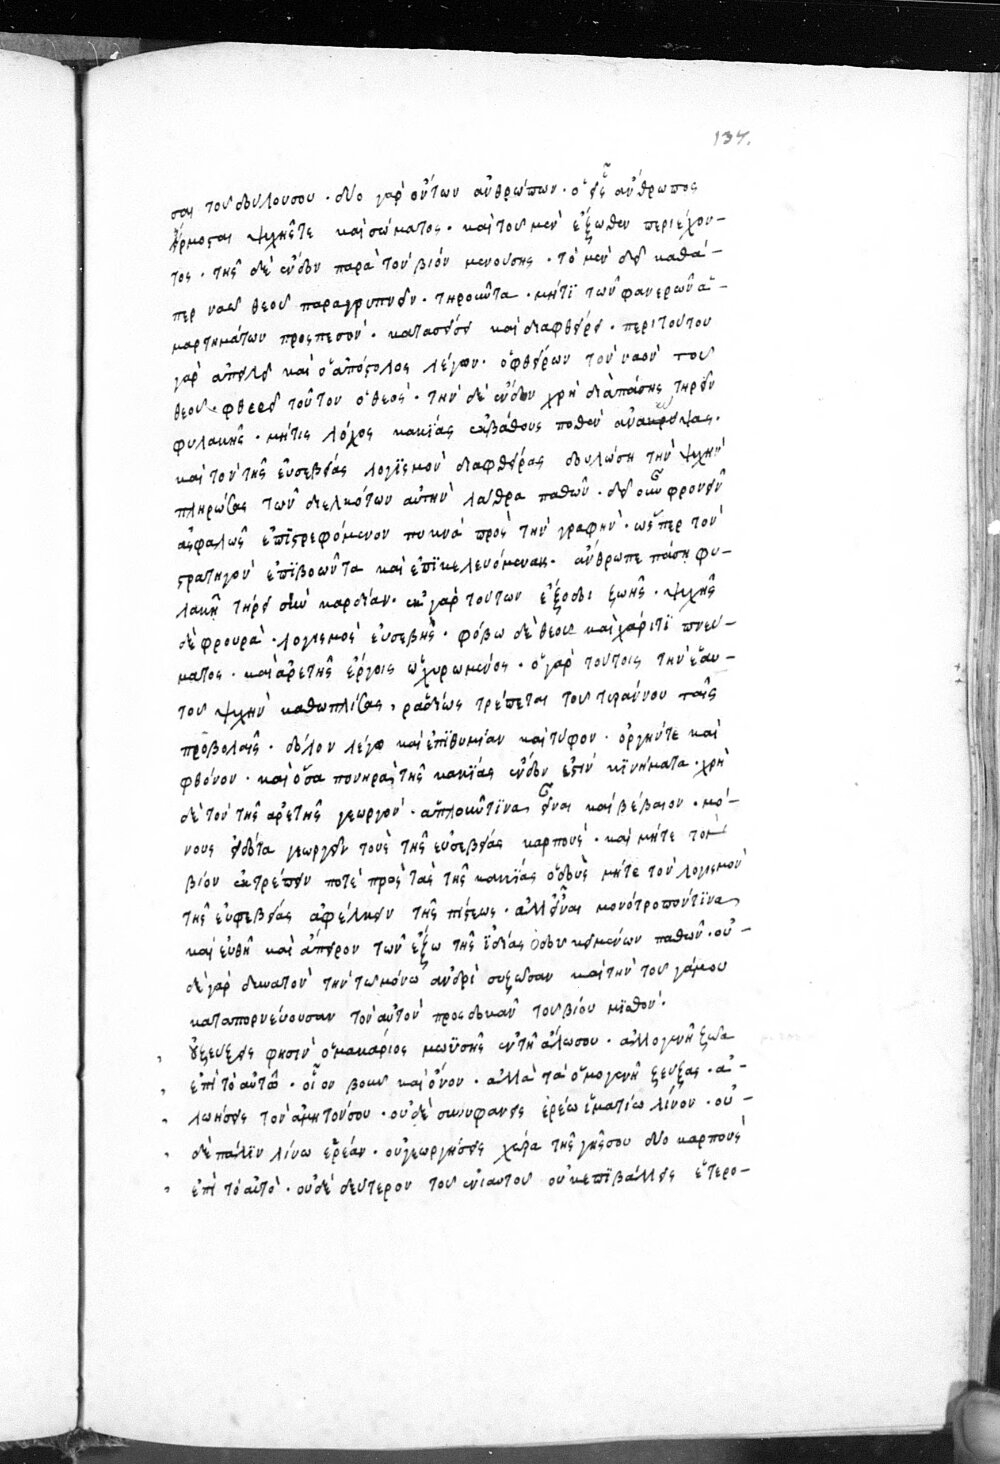 137.
σαι τοῦ δουλουσου · δύο γὰρ ὄντων ἀνθρώπων · ὁ εἷς ἄνθρωπος
ἥρμοσται ψυχῆς τε καὶ σώματος · καὶ τοῦ μὲν ἔξωθεν περιέχον-
τος · τῆς δὲ ἔνδον παρὰ τὸν βίον μενούσης · τὸ μὲν δεῖ καθά-
περ ναῶ θεοῦ παραγρυπνεῖν · τηροῦντα · μήτι τῶν φανερῶν ἁ-
μαρτημάτων προσπεσὸν · κατασείσει καὶ διαφθείρει · περὶ τούτου
γὰρ ἀπειλεῖ καὶ ὁ ἀπόστολος λέγων · ὁ φθείρων τὸν ναὸν τοῦ
θεοῦ · φθερεῖ τοῦτον ὁ θεός · τὴν δὲ ἔνδον χρὴ διὰ πάσης τηρεῖν
φυλακῆς · μήτις λόχος κακίας ἐκ βάθους ποθεν ἀνακύψας ·
καὶ τὸν τῆς εὐσεβείας λογϊσμὸν διαφθείρας δουλώση τὴν ψυχὴν
πληρώσας τῶν διελκόντων αὐτὴν λάθρα παθῶν · δεῖ οὖν φρουρεῖν
ἀσφαλῶς ἐπϊστρεφόμενον πυκνὰ πρὸς τὴν γραφὴν · ὥσπερ τὸν
στρατηγὸν ἐπϊβοῶντα καὶ ἐπϊκελευόμενον · ἄνθρωπε πάση φυ-
λακῆ τήρει σὴν καρδίαν · ἐκ γὰρ τούτων ἔξοδοι ζωῆς · ψυχῆς
δὲ φρουρὰ · λογισμὸς εὐσεβὴς · φόβω δὲ θεοῦ καὶ χάριτϊ πνεύ-
ματος · καὶ ἀρετῆς ἔργοις ὠχυρωμένος · ὁ γὰρ τούτοις τὴν ἑαυ-
τοῦ ψυχὴν καθωπλίσας, ῥαδίως τρέπεται τοῦ τυράννου ταῖς
προβολαῖς · δόλον λέγω καὶ ἐπϊθυμίαν καὶ τύφον · ὀργήν τε καὶ
φθόνον · καὶ ὅσα πονηρὰ τῆς κακίας ἔνδον ἐστὶν κϊνήματα · χρὴ
δὲ τὸν τῆς ἀρετῆς γεωργὸν · ἁπλοῦν τϊνα εἶναι καὶ βέβαιον · μό-
νους εἰδότα γεωργεῖν τοὺς τῆς εὐσεβείας καρποὺς · καὶ μήτε τὸν
βίον ἐκτρέπειν ποτὲ πρὸς τὰς τῆς κακίας ὁδοὺς μήτε τὸν λογισμὸν
τῆς εὐσεβείας ἀφέλκειν τῆς πίστεως · ἀλλ' εἶναι μονότροπόν τϊνα
καὶ εὐθῆ καὶ ἄπειρον τῶν ἔξω τῆς ἰδίας ὁδοῦ κειμένων παθῶν · οὐ-
δὲ γὰρ δυνατὸν τὴν τῶ μόνω ἀνδρὶ συζῶσαν καὶ τὴν τοῦ γάμου
καταπορνεύουσαν τὸν αὐτὸν προσδοκᾶν τοῦ βίου μϊσθὸν ·
οὐ ζεύξεις φησὶν ὁ μακάριος μωϋσῆς ἐν τῆ ἅλωσου · ἀλλογενῆ ζῶα
ἐπὶ τὸ αὐτῶ · οἷον βοῦν καὶ ὄνον · ἀλλὰ τὰ ὁμογενῆ ζεύξας · ἀ-
λωήσεις τὸν ἀμητόν σου · οὐδὲ συνυφανεῖς ἐρέω ἱματίω λίνον · οὐ-
δὲ πάλϊν λίνω ἐρέαν · οὐ γεωργήσεις χώρα τῆς γῆς σου δύο καρποὺς
ἐπὶ τὸ αὐτὸ · οὐδὲ δεύτερον τοῦ ἐνιαυτοῦ οὐκ ἐπϊβάλλεις ἑτερο-